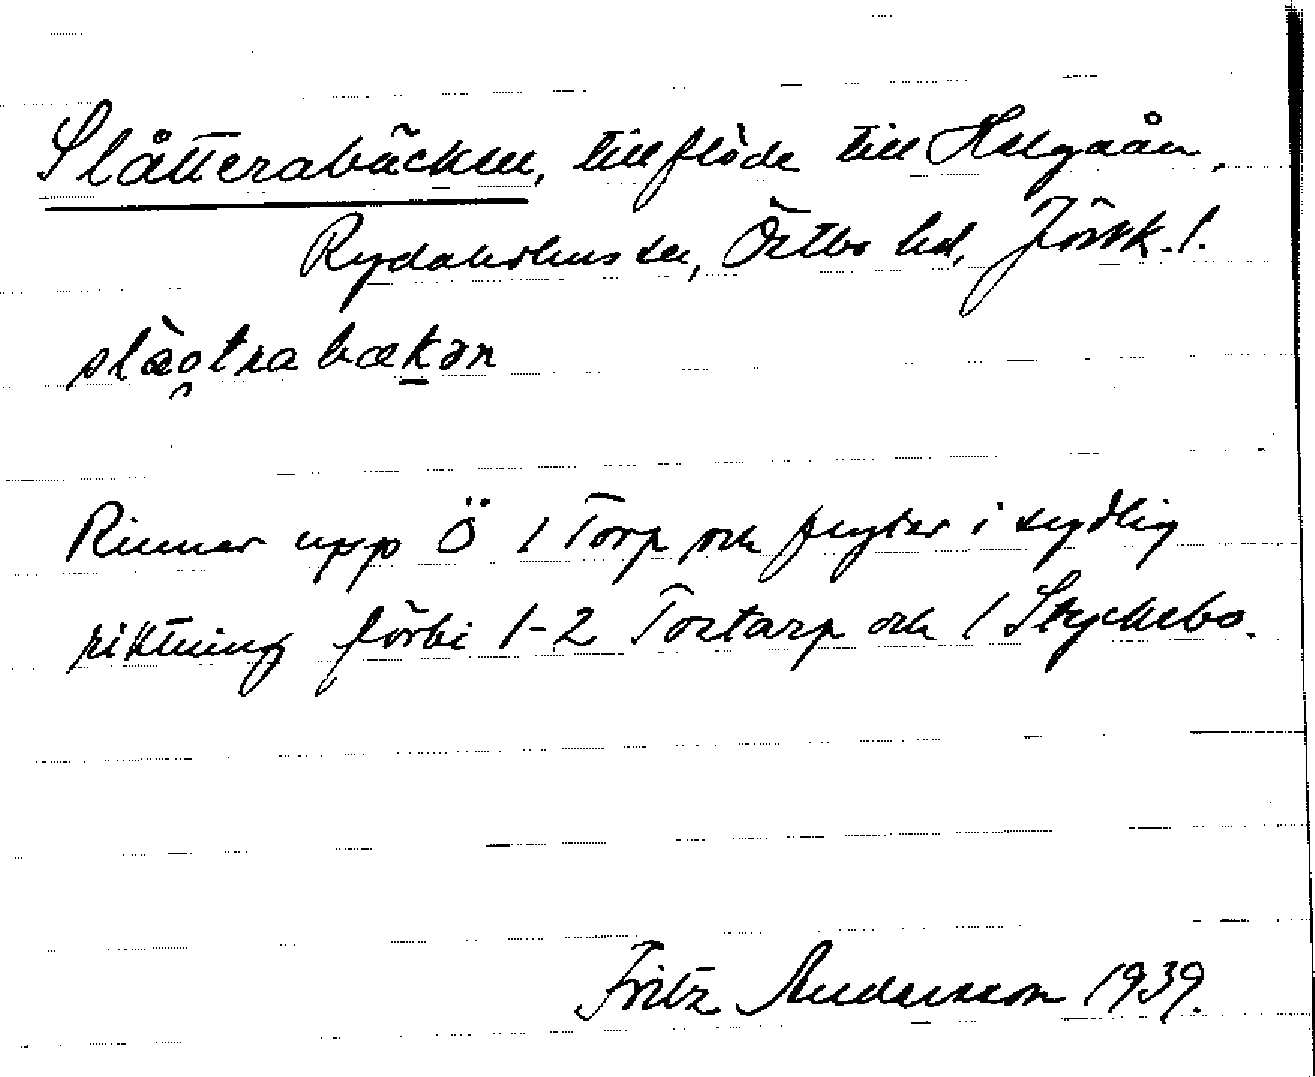 Slåtterabäcken, tillflöde till Helgaån,
Rydaholms sn, Östbo hd, Jönk. l.
slæǫtrabækən
Rinner upp Ö 1 Torp och flyter i sydlig
riktning förbi 1-2 Tortarp och 1 Styckebo.
Fritz Andersson 1939.